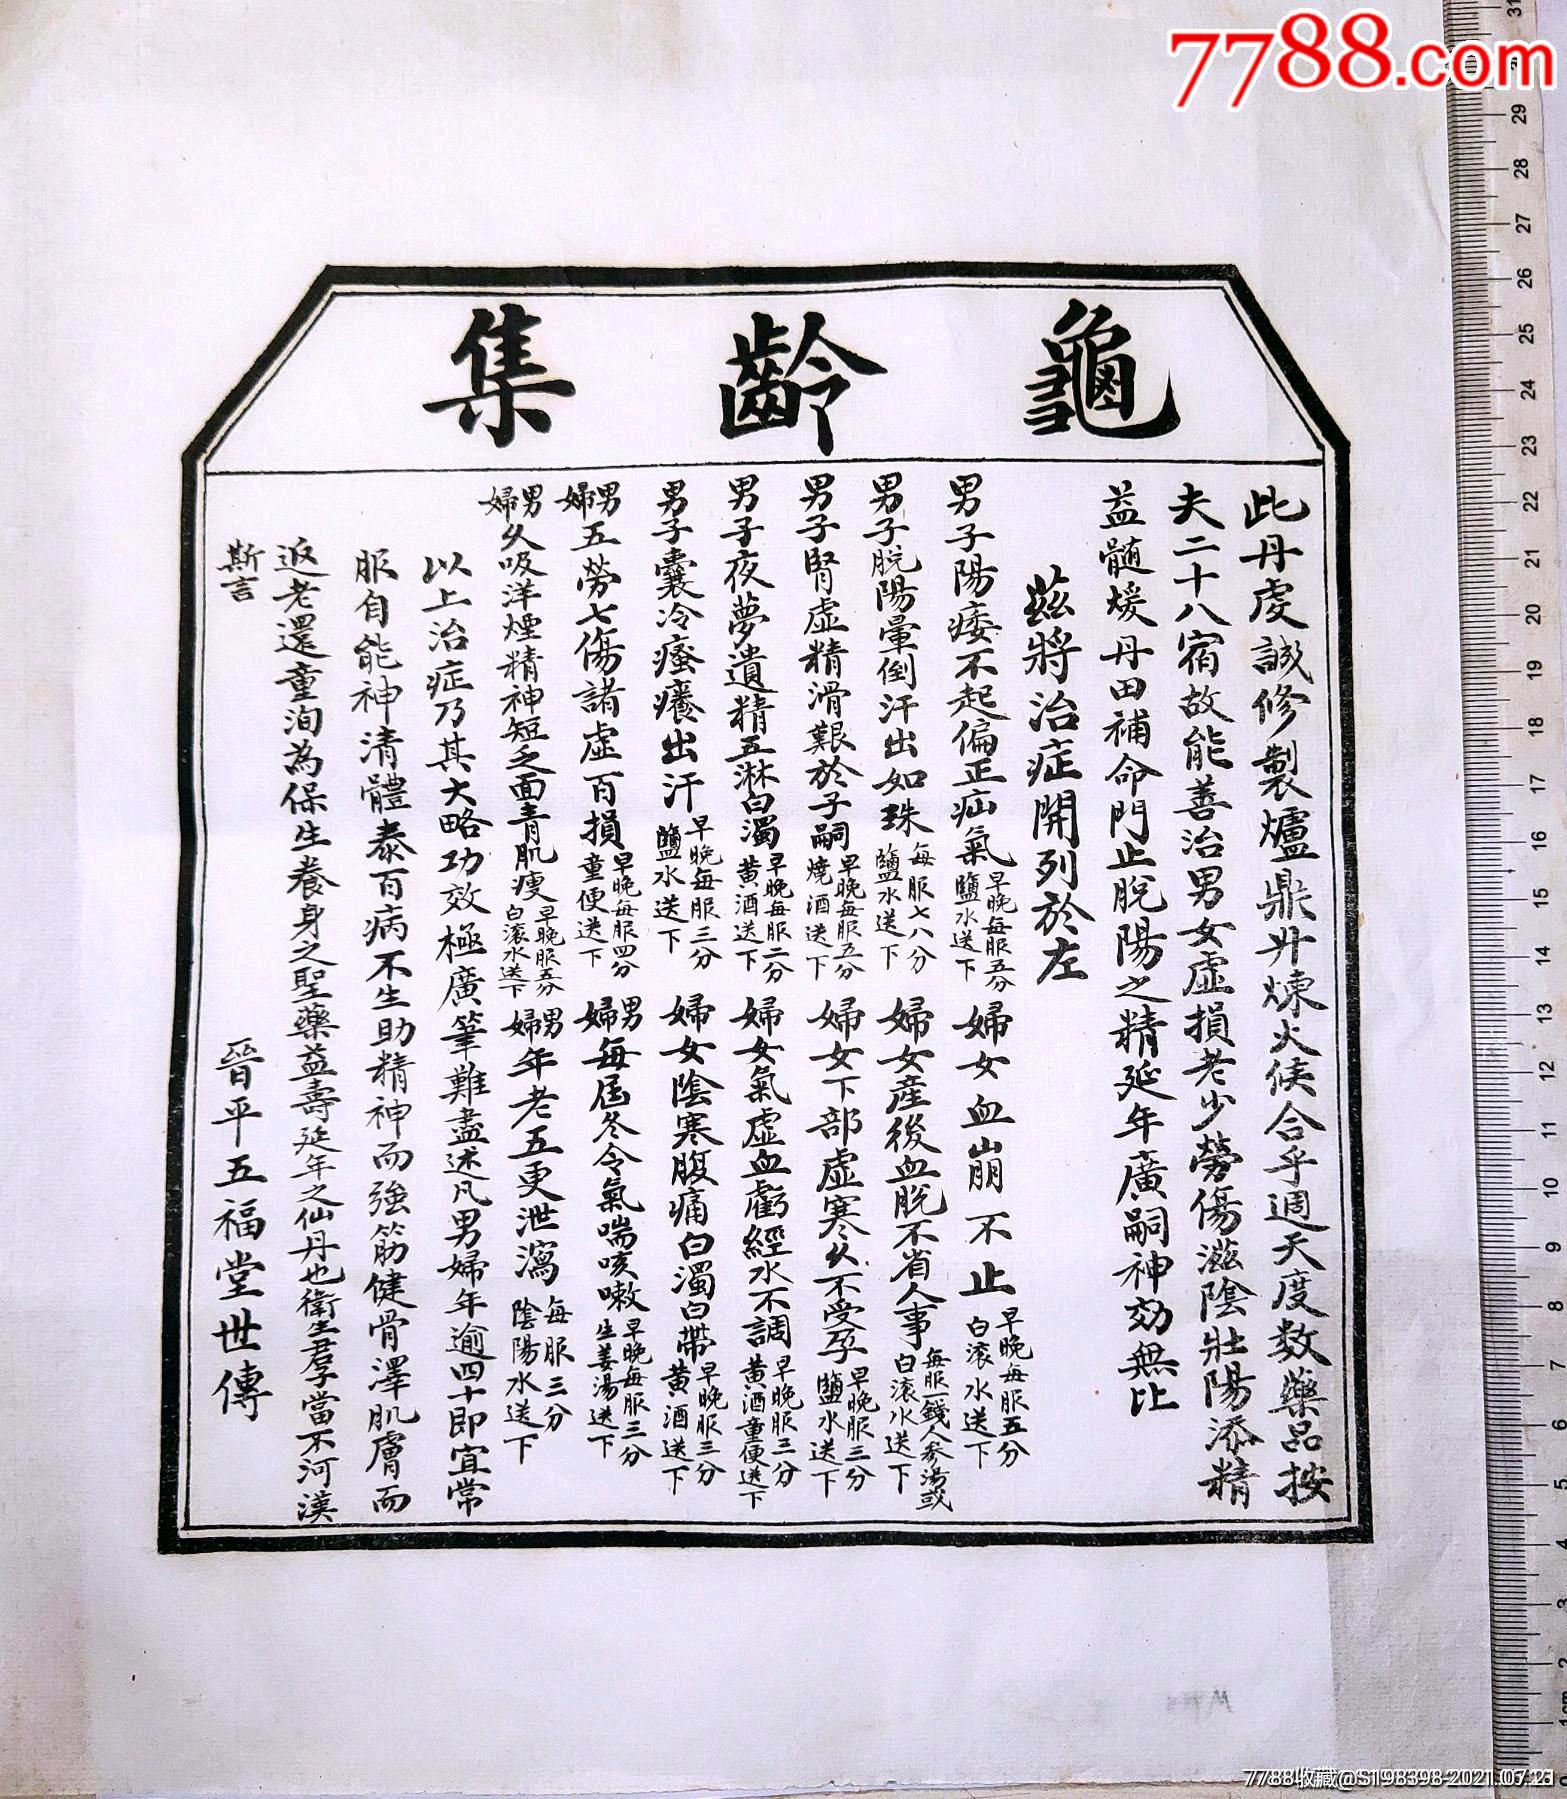 7788.com
龜齡集
此丹虔誠修製爐鼎升煉火候合乎週天度数藥品按
夫二十八宿故能善治男女虛損老少勞傷滋陰壯陽添精
益髓煖丹田補命門止脫陽之精延年廣嗣神効無比
茲將治症開列於左
男子陽痿不起偏正疝氣早晚每服五分鹽水送下 婦女血崩不止早晚每服五分白滾水送下
男子脫陽暈倒汗出如珠每服七八分鹽水送下 婦女產後血脫不省人事每服一錢人參湯或白滾水送下
男子腎虛精滑艱於子嗣早晚每服五分燒酒送下 婦女下部虛寒久不受孕早晚服三分鹽水送下
男子夜夢遺精五淋白濁早晚每服二分黄酒送下 婦女氣虛血虧經水不調早晚服三分黄酒童便送下
男子囊冷瘙癢出汗早晚每服三分鹽水送下 婦女陰寒腹痛白濁白帶早晚服三分黄酒送下
男婦五勞七傷諸虛百損早晚每服四分童便送下 男婦每屆冬令氣喘咳嗽早晚每服三分生姜湯送下
男婦久吸洋煙精神短乏面青肌瘦早晚服五分白滾水送下 男婦年老五更泄瀉每服三分陰陽水送下
以上治症乃其大略功效極廣筆難盡述凡男婦年逾四十即宜常
服自能神清體泰百病不生助精神而強筋健骨澤肌膚而
返老還童洵為保生養身之聖藥益壽延年之仙丹也衛生君子當不河漢
斯言
晉平五福堂世傳
31
29
28
27
26
25
24
23
22
21
20
19
18
17
16
15
14
13
12
11
10
9
8
7
6
5
4
3
2
1cm
0